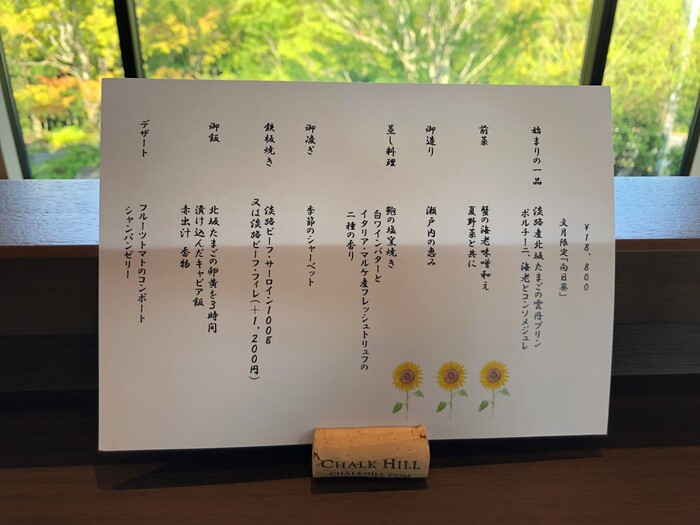 ¥18,800
文月限定「向日葵」
始まりの一品
淡路産北坂たまごの雲丹プリン
ポルチーニ、海老とコンソメジュレ
前菜
蟹の海老味噌和え
夏野菜と共に
御造り
瀬戸内の恵み
蒸し料理
鮑の塩窯焼き
白ワインバターと
イタリア・マルケ産フレッシュトリュフの
二種の香り
御凌ぎ
季節のシャーベット
鉄板焼き
淡路ビーフ・サーロイン100g
又は淡路ビーフ・フィレ(+1,200円)
御飯
北坂たまごの卵黄を3時間
漬け込んだキャビア飯
赤出汁 香物
デザート
フルーツトマトのコンポート
シャンパンゼリー
CHALK HILL
CHALKHILL.COM